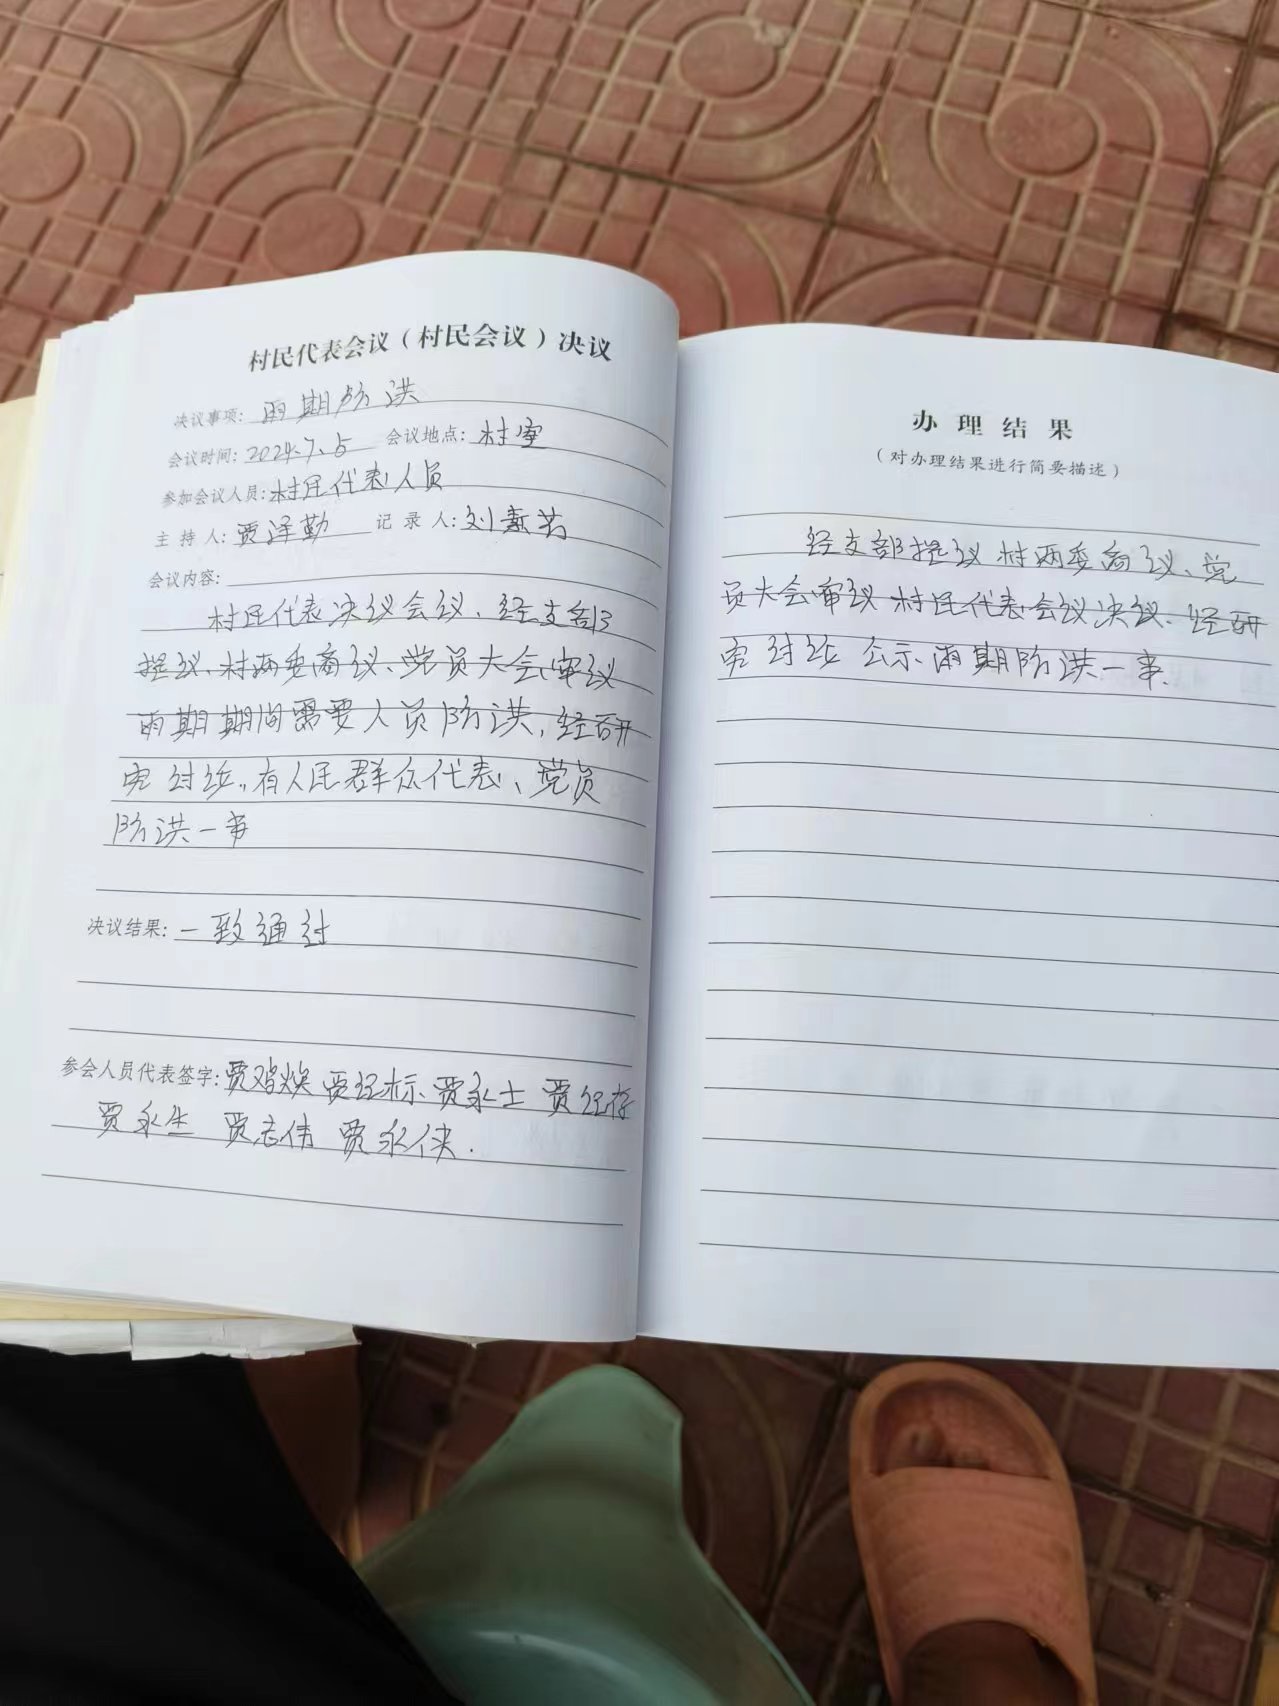 村民代表会议（村民会议）决议
决议事项：雨期防洪
会议时间：2024.7.5 会议地点：村室
参加会议人员：村民代表人员
主持人：贾泽勤 记录人：刘素芳
会议内容：
村民代表决议会议、经支部
提议、村两委商议、党员大会审议
雨期期间需要人员防洪，经研
究讨论，有人民群众代表、党员
防洪一事
决议结果：一致通过
参会人员代表签字：贾鸡焕 贾经标 贾永士 贾经存
贾永生 贾志伟 贾永侠.
办理结果
（对办理结果进行简要描述）
经支部提议 村两委商议、党
员大会审议 村民代表会议决议、经研
究讨论 公示雨期防洪一事.